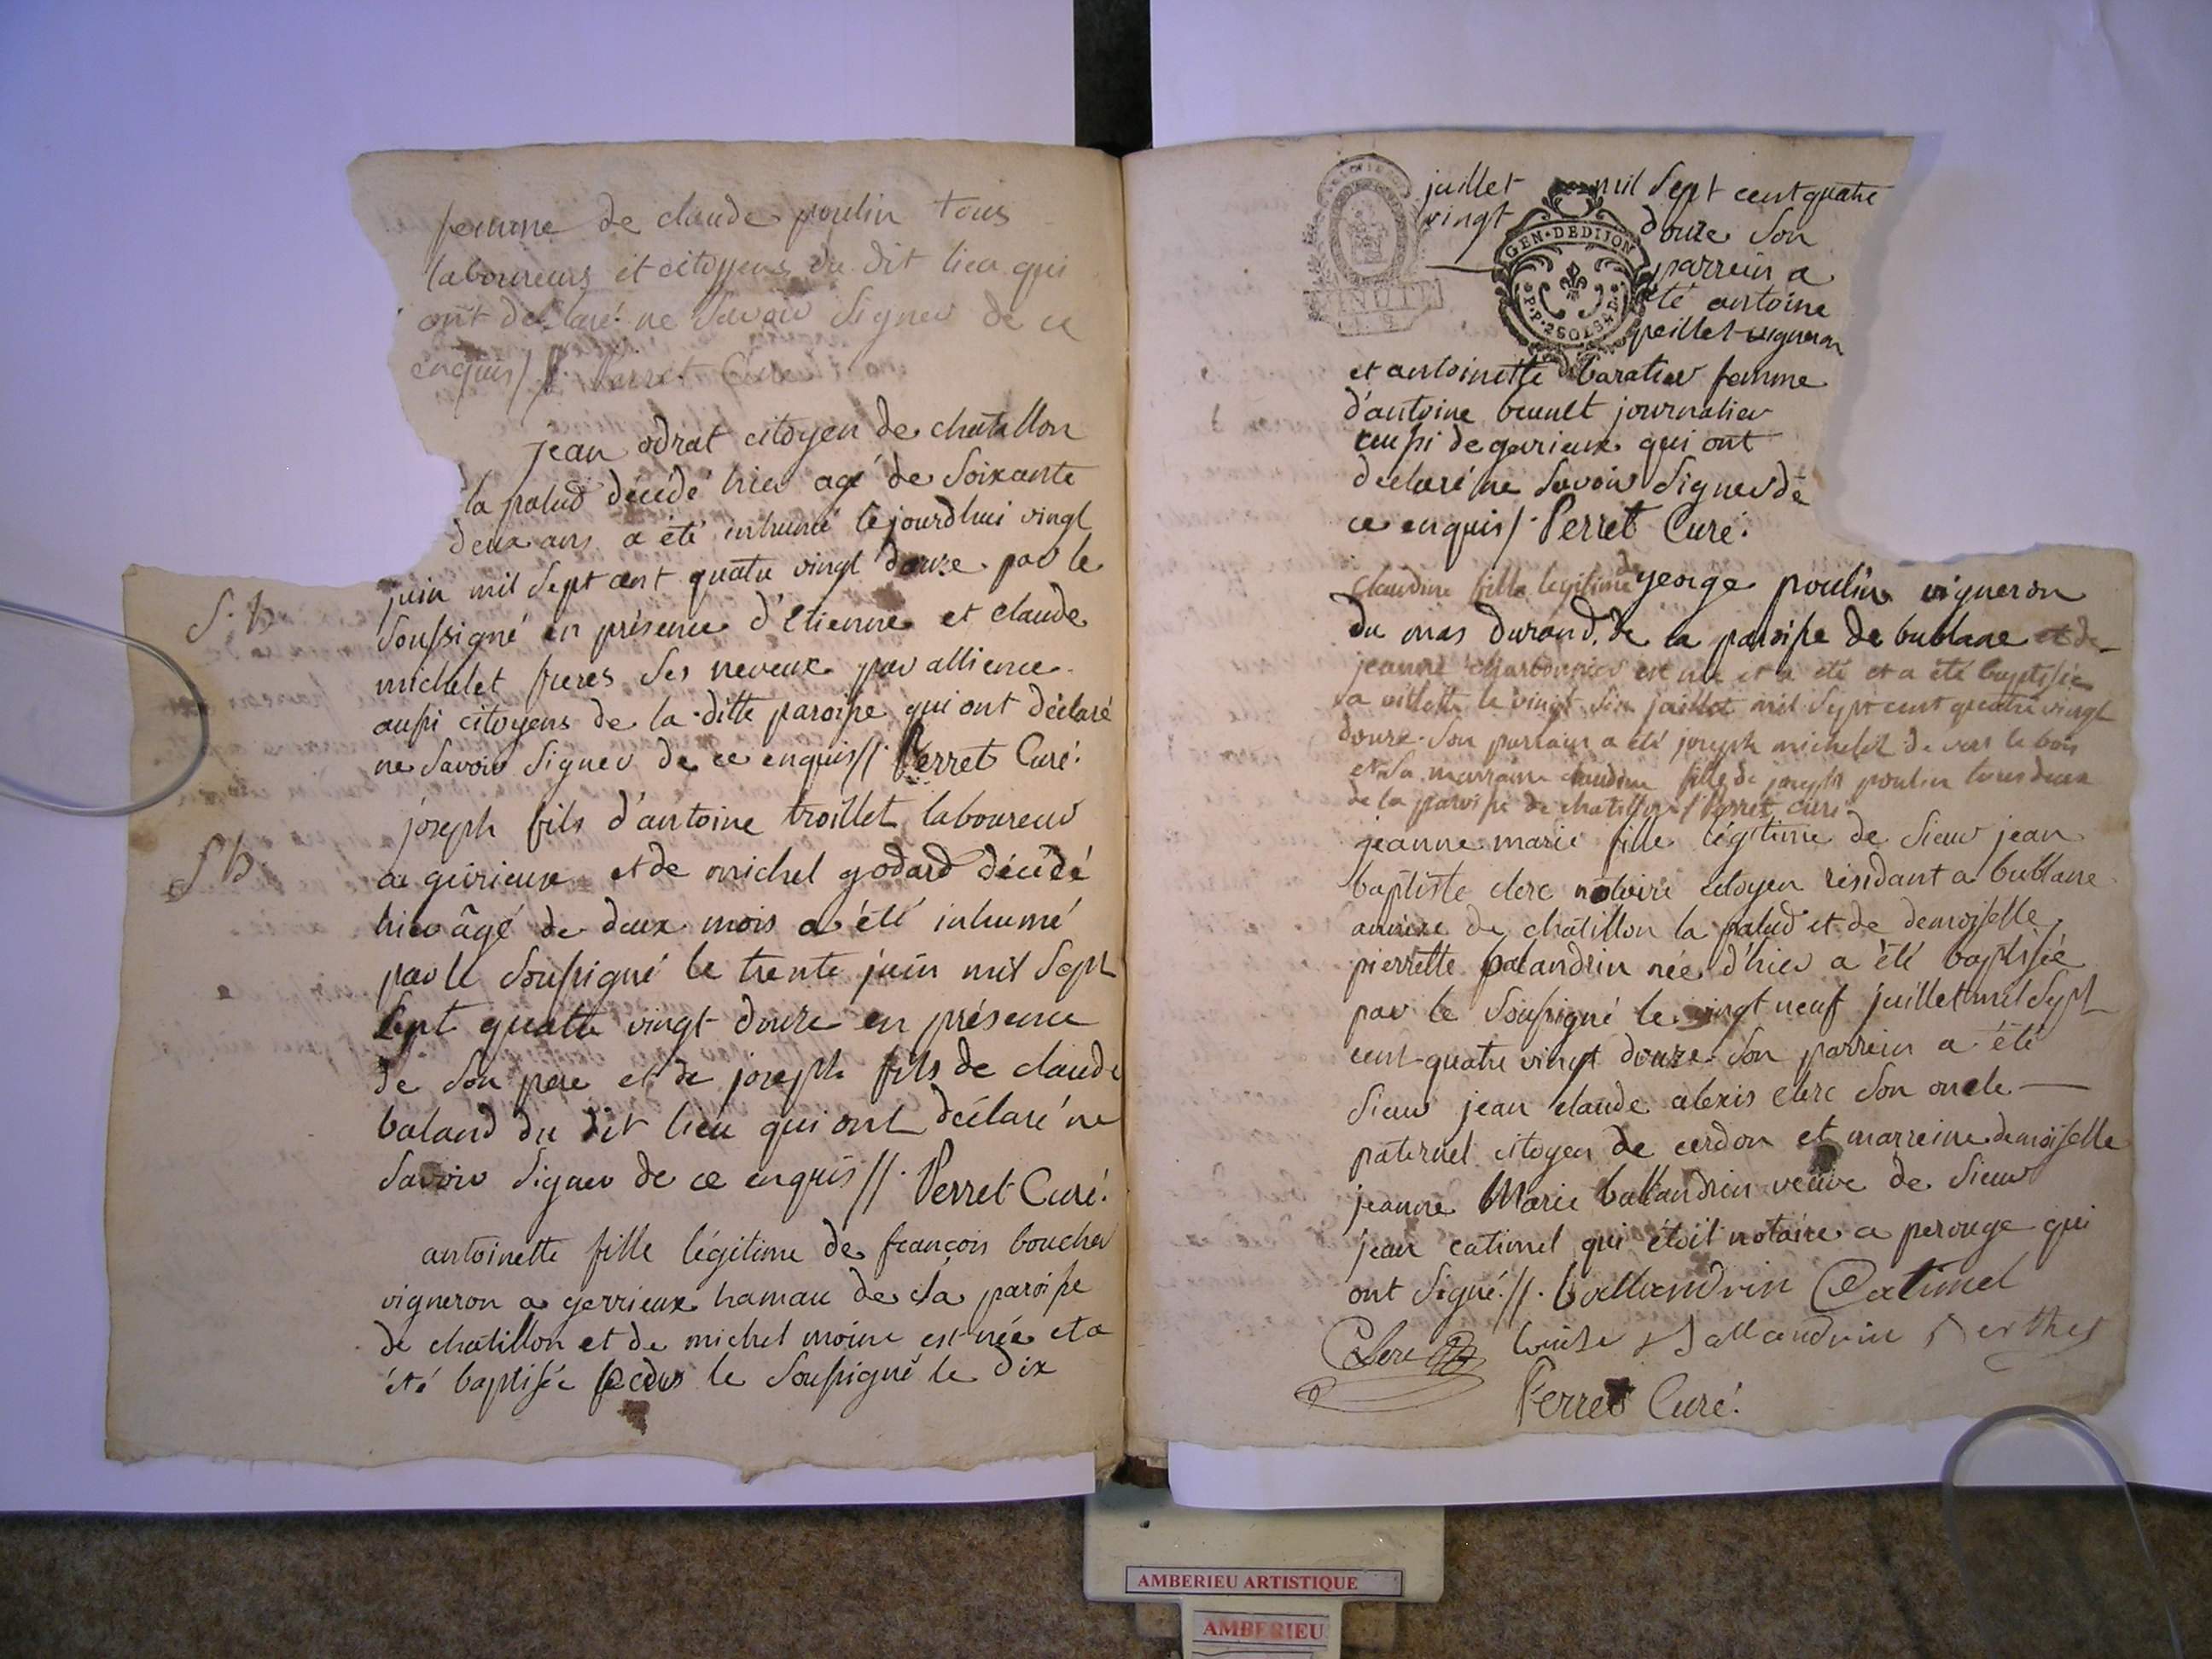 femme de claude poulin tous
laboureurs et citoyens du dit lieu qui
ont declaré ne savoir signer de ce
enquis//. Perret Curé
jean odrat citoyen de chatillon
la palud décédé hier agé de soixante
deux ans a été inhumé le jourdhui vingt
juin mil sept cent quatre vingt douze par le
S. h
soussigné en présence d'étienne et claude
michelet freres ses neveux par allience
aussi citoyens de la ditte paroisse qui ont déclaré
ne savoir signer de ce enquis//. Perret Curé.
joseph fils d'antoine troillet laboureur
S h.
a gevrieux et de michel godard décédé
hier âgé de deux mois a été inhumé
par le soussigné le trente juin mil sept
sept quatre vingt douze en présence
de son pere et de joseph fils de claude
baland du dit lieu qui ont déclaré ne
savoir signer de ce enquis//. Perret Curé.
antoinette fille légitime de françois boucher
vigneron a gevrieux hamau de la paroisse
de chatillon et de michel moine est née et a
été baptisée par le soussigné le dix
juillet mil sept cent quatre
vingt douze son
GEN·DEDIJON
parrein a
été antoine
P.P. 2 SOLS 8 D
peillet vigneron
et antoinette baratier femme
d'antoine brunet journalier
aussi de gevrieux qui ont
declaré ne savoir signer de
ce enquis/. Perret Curé.
claudine fille legitime de george poulin vigneron
du mas durand, de la paroisse de bublane et de
jeanne charbonnier est née et a été et a été baptisée
a villette le vingt six juillet mil sept cent quatre vingt
douze. son parrain a été joseph michelet de vers le bois
et sa marraine claudine fille de joseph poulin tous deux
de la paroisse de chatillon / Perret curé
jeanne marie fille légitime de sieur jean
baptiste clerc notaire citoyen résidant a bublane
annexe de châtillon la palud et de demoiselle
pierrette balandrin née d'hier a été baptisée
par le soussigné le vingt neuf juillet mil sept
cent quatre vingt douze. son parrein a été
sieur jean claude alexis clerc son oncle
paternel citoyen de cerdon et marreine demoiselle
jeanne Marie ballandrin veuve de sieur
jean catimel qui étoit notaire a perouge qui
ont signé.//. ballandrin Catimel
Clerc louise Ballandrin Berthet
Perret Curé.
AMBERIEU ARTISTIQUE
AMBERIEU